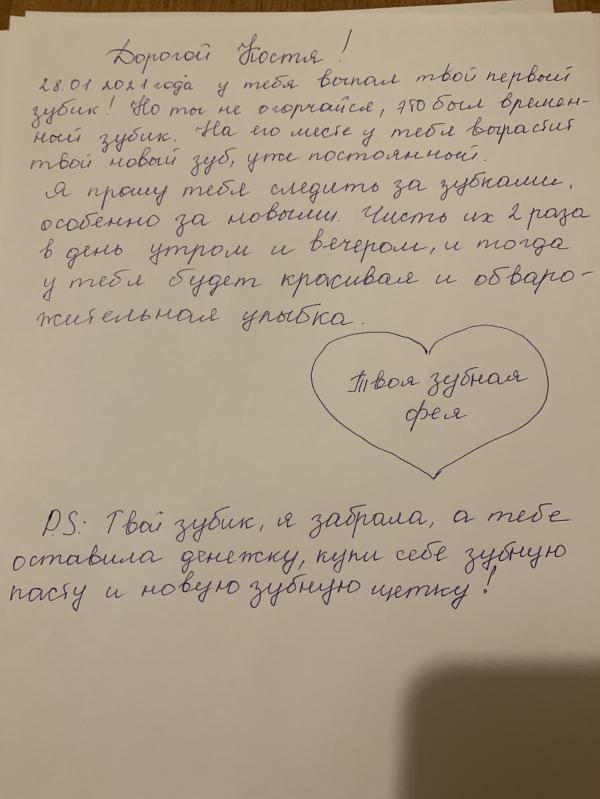 Дорогой Костя!
28.01.2021 года у тебя выпал твой первый
зубик! Но ты не огорчайся, это был времен-
ный зубик. На его месте у тебя вырастит
твой новый зуб, уже постоянный.
Я прошу тебя следить за зубками,
особенно за новыми. Чисть их 2 раза
в день утром и вечером, и тогда
у тебя будет красивая и обваро-
жительная улыбка.
Твоя зубная
фея
P.S: Твой зубик, я забрала, а тебе
оставила денежку, купи себе зубную
пасту и новую зубную щетку!